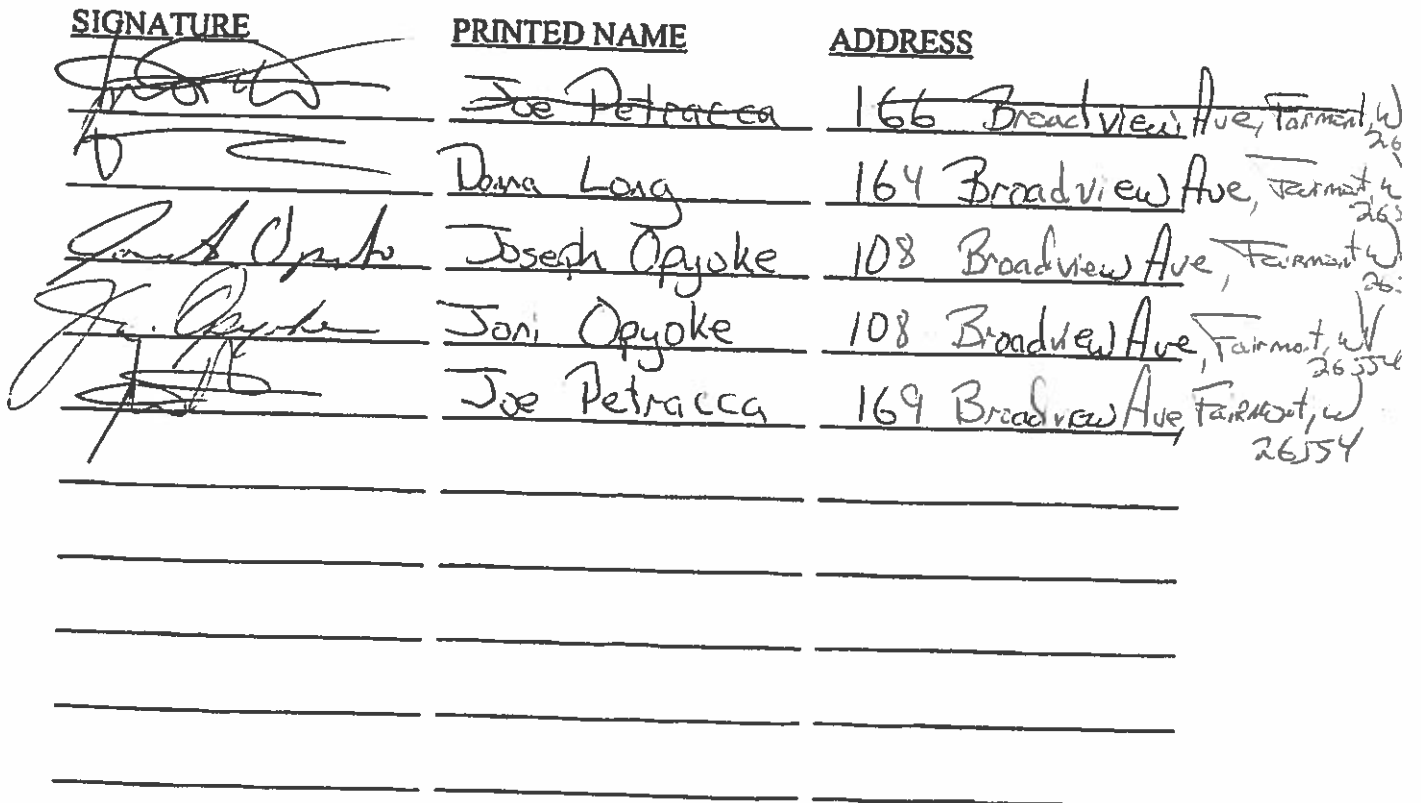 SIGNATURE PRINTED NAME ADDRESS
Joe Petracca 166 Broadview Ave, Fairmont, W
26
Long 164 Broadview Ave, Fairmont,
Joseph Opyoke 108 Broadview Ave, Fairmont W
Joni Opyoke 108 Broadview Ave, Fairmont, WV
26554
Joe Petracca 169 Broadview Ave, FAIRMONT, W
26554